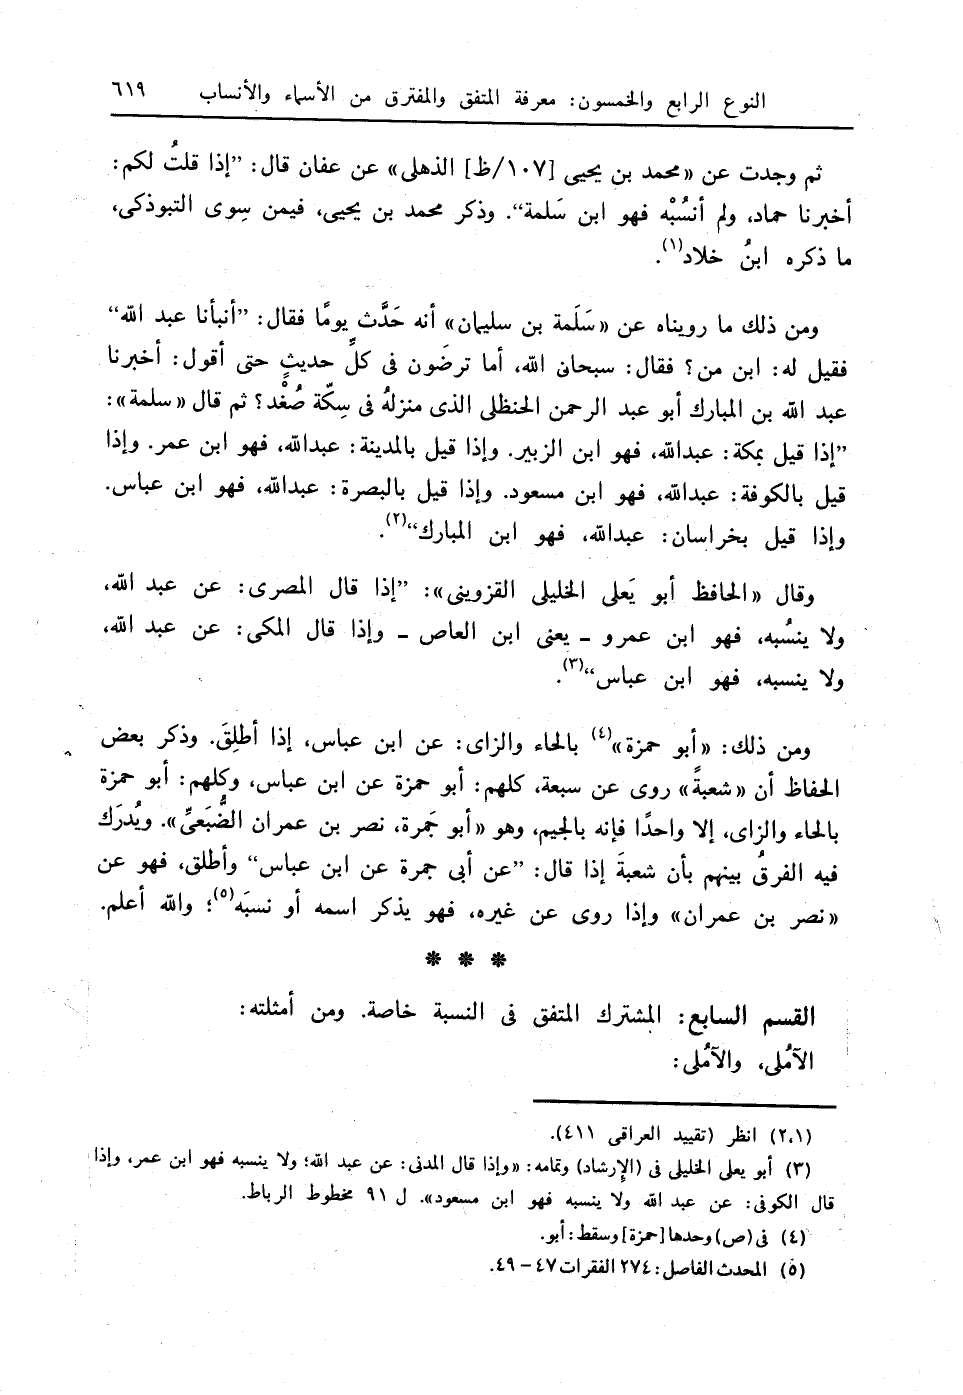 النوع الرابع والخمسون: معرفة المتفق والمفترق من الأسماء والأنساب ٦١٩
ثم وجدت عن «محمد بن يحيى [١٠٧/ظ] الذهلى» عن عفان قال: ”إذا قلتُ لكم:
أخبرنا حماد، ولم أنسُبْه فهو ابن سَلمة“. وذكر محمد بن يحيى، فيمن سِوى التبوذكى،
ما ذكره ابنُ خلاد(١).
ومن ذلك ما رويناه عن «سَلَمة بن سليمان» أنه حَدَّث يومًا فقال: ”أنبأنا عبد الله“
فقيل له: ابن من؟ فقال: سبحان الله، أما ترضَون فى كلِّ حديثٍ حتى أقول: أخبرنا
عبد الله بن المبارك أبو عبد الرحمن الحنظلى الذى منزلهُ فى سِكّة صُغْد؟ ثم قال «سلمة»:
”إذا قيل بمكة: عبدالله، فهو ابن الزبير. وإذا قيل بالمدينة: عبدالله، فهو ابن عمر. وإذا
قيل بالكوفة: عبدالله، فهو ابن مسعود. وإذا قيل بالبصرة: عبدالله، فهو ابن عباس.
وإذا قيل بخراسان: عبدالله، فهو ابن المبارك“(٢).
وقال «الحافظ أبو يَعلى الخليلى القزوينى»: ”إذا قال المصرى: عن عبد الله،
ولا ينسُبه، فهو ابن عمرو ـ يعنى ابن العاص ـ وإذا قال المكى: عن عبد الله،
ولا ينسبه، فهو ابن عباس“(٣).
ومن ذلك: «أبو حمزة»(٤) بالحاء والزاى: عن ابن عباس، إذا أطلِقَ. وذكر بعض
الحفاظ أن «شعبةً» روى عن سبعة، كلهم: أبو حمزة عن ابن عباس، وكلهم: أبو حمزة
بالحاء والزاى، إلا واحدًا فإنه بالجيم، وهو «أبو جَمرة، نصر بن عمران الضُّبَعىِّ». ويُدرَك
فيه الفرقُ بينهم بأن شعبةَ إذا قال: ”عن أبى جمرة عن ابن عباس“ وأطلق، فهو عن
«نصر بن عمران» وإذا روى عن غيره، فهو يذكر اسمه أو نسبَه(٥)؛ والله أعلم.
* * *
القسم السابع: المشترك المتفق فى النسبة خاصة. ومن أمثلته:
الآمُلى، والآمُلى:
(٢،١) انظر (تقييد العراقى ٤١١).
(٣) أبو يعلى الخليلى فى (الإرشاد) وتمامه: «وإذا قال المدنى: عن عبد الله؛ ولا ينسبه فهو ابن عمر، وإذا
قال الكوفى: عن عبد الله ولا ينسبه فهو ابن مسعود». ل ٩١ مخطوط الرباط.
(٤) فى (ص) وحدها [حمزة] وسقط: أبو.
(٥) المحدث الفاصل: ٢٧٤ الفقرات ٤٧ – ٤٩.